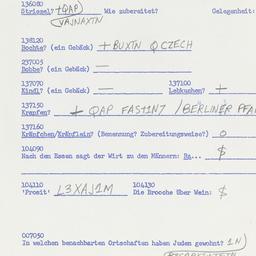 136080
Striezel? +QAP) Wie zubereitet? Gelegenheit:
VAJNAXTN
138120
Bochte? (ein Gebäck) + BUXTN Q CZECH
237003
Bobbe? (ein Gebäck) —
137070 137100
Kindl? (ein Gebäck) — Lebkuchen? +
137150
Krapfen? + QAP FAST1N7 / BERLINER PFA
137160
Kräpfchen/Kräpflein? (Benennung? Zubereitungsweise?) O
104090
Nach dem Essen sagt der Wirt zu den Männern: Ra... $
104110 104130
'Prosit' L3XAJ1M Die Brooche über Wein: $
007050
In welchen benachbarten Ortschaften haben Juden gewohnt? 1N)